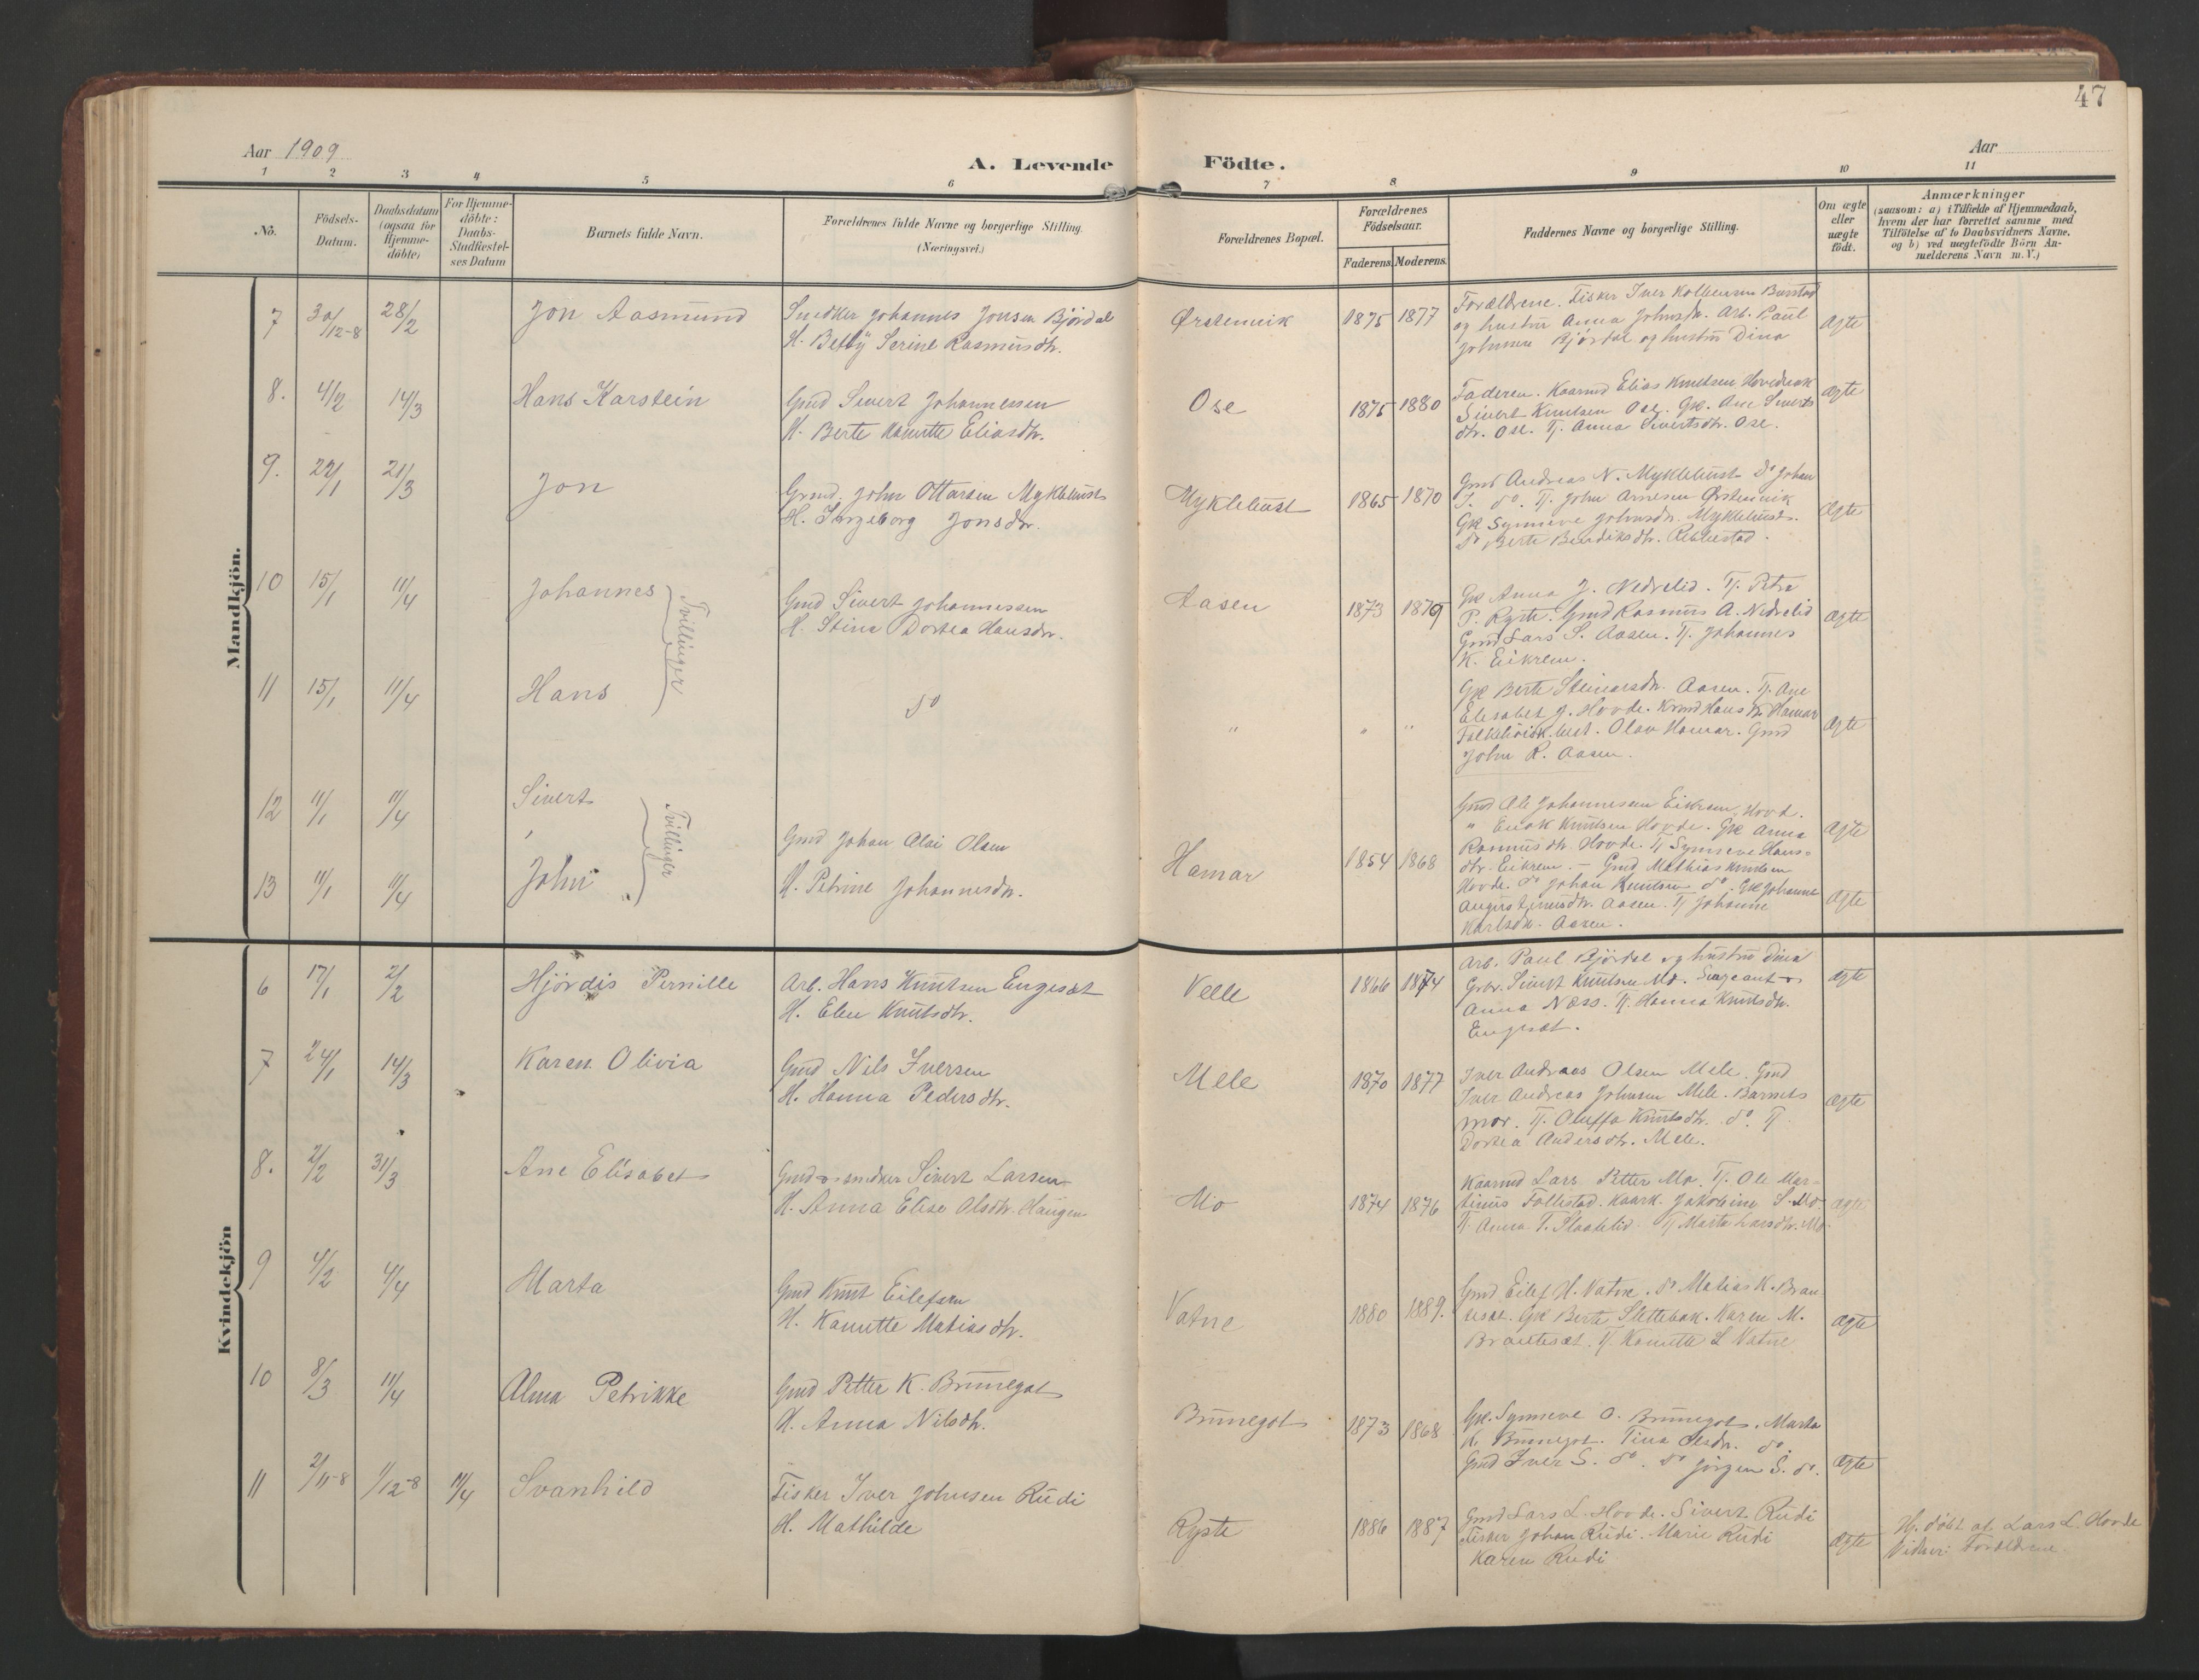 47
Aar 1909
A. Levende Födte.
Aar
1 2 3 4 5 6 7 8 9 10 11
No.
Födsels-
Datum.
Daabsdatum
(ogsaa for
Hjemme-
döbte)
For Hjemme-
döbte:
Daabs-
Stadfæstel-
ses Datum
Barnets fulde Navn.
Forældrenes fulde Navne og borgerlige Stilling.
(Næringsvei.)
Forældrenes Bopæl.
Forældrenes
Födselsaar.
Faderens. Moderens.
Faddernes Navne og borgerlige Stilling.
Om ægte
eller
uægte
födt.
Anmærkninger
(saasom: a) i Tilfælde af Hjemmedaab,
hvem der har forrettet samme med
Tilföielse af to Daabsvidners Navne,
og b) ved uægtefödte Börn An-
melderens Navn m.V.)
Mandkjön.
7 30/12-8 28/2 Jon Aasmund
Snedker Johannes Jonsen Bjørdal
H. Betsy Serine Rasmusdtr.
Ørstenvik 1875 1877
Forældrene. Fisker Iver Kolbeinsen Barstad
og hustru Anna Johnsdr. Arb. Paul
Johnsen Bjørdal og hustru Dina
Ægte
8. 4/2 14/3 Hans Karstein
Gmd Sivert Johannessen
H. Berte Hanutte Eliasdtr.
Ose 1875 1880
Faderen. Kaarmd Elias Knutsen Hovdenak
Sivert Knutsen Ose. Gk. Ane Siverts
dtr. Ose. Tj. Anna Sivertsdtr. Ose.
Ægte
9. 22/1 21/3 Jon
Grmd. John Ottarsen Myklebust
H. Ingeborg Jonsdtr.
Myklebust 1865 1870
Gmd Andreas N. Myklebust do Johan
J. do. Tj. John Arnesen Ørstenvik
Gk Synneve Johnsdr. Myklebust.
do Berte Bendiksdtr. Rebbestad.
Ægte
10 15/1 11/4 Johannes
Tvillinger
Gmd Sivert Johannessen
H. Stina Dortea Hansdtr.
Aasen 1873 1879
Gk Anna J. Nedrelid. Tj. Petra
P. Ryste. Gmd Rasmus A. Nedrelid
Gmd Lars S. Aasen. Tj. Johannes
K. Eikrem.
Ægte
11 15/1 11/4 Hans
do
" " "
Gk Berte Steinarsdtr. Aasen. Tj. Ane
Elisabet J. Hovde. Kaarmd Hans K. Hamar
Folkehøisk.best. Olav Hamar. Gmd
John R. Aasen.
Ægte
12 11/1 11/4 Sivert
Tvillinger
Gmd Johan Olai Olsen
H. Petrine Johannesdtr.
Hamar 1854 1868
Gmd Ole Johannessen Eikrem, Hovd.
" Enok Knutsen Hovde. Gk Anna
Rasmusdtr. Hovde. Tj Synneve Hans-
dtr. Eikrem. - Gmd Mathias Knutsen
Hovde. do Johan Knutsen do. Gk Johanne
Augustinusdtr. Aasen. Tj Johanne
Karlsdtr. Aasen.
Ægte
13 11/1 11/4 John
Ægte
Kvindekjön
6 17/1 2/2 Hjördis Pernille
Arb. Hans Knutsen Engeset
H. Elen Knutsdtr.
Velle 1866 1874
Arb. Paul Björdal og hustru Dina
Grbr. Sivert Knutsen Mo. Sergeant
Anna Næss. Tj. Hanna Knutsdtr.
Engeset.
Ægte
7 24/1 14/3 Karen Olivia
Gmd Nils Iversen
H. Hanna Pedersdtr.
Mele 1870 1877
Iver Andreas Olsen Mele. Gmd
Iver Andreas Johnsen Mele. Barnets
mor. Tj. Oluffa Knutsdtr. do. Tj
Dortea Andersdtr. Mele.
Ægte
8. 2/2 31/3 Ane Elisabet
Gmd og snedker Sivert Larsen
H. Anna Elise Olsdtr. Haugen
Mo 1874 1876
Kaarmd Lars Petter Mo. Tj. Ole Mar-
tinus Follestad. Kaark. Jakobine S. Mo
Tj Anna T. Flaatelid. Tj Marta Larsdtr. Mo.
Ægte
9 4/2 4/4 Marta
Gmd Knut Eilefsen
H. Kanutte Matiasdtr.
Vatne 1880 1889.
Gmd Eilef H. Vatne. do Matias K. Brau-
teset. Gk Berte Slettebak. Karen M.
Brauteset. Tj. Kanutte L Vatne
Ægte
10 8/3 11/4 Alma Petrikke
Gmd Petter K. Brunegot
H. Anna Nilsdtr.
Brunegot 1873 1868
Gk. Synneve O. Brunegot. Marta
K. Brunegot. Tina Olsdr. do.
Gmd Iver S. do. do Jörgen S. do.
Ægte
11 2/11-8 1/12-8 11/4 Svanhild
Fisker Iver Johnsen Rudi
H. Mathilde
Ryste 1886 1887
Gmd Lars L. Hovde. Sivert Rudi
Fisker Johan Rudi. Marie Rudi
Karen Rudi
Ægte
Hj. döbt af Lars L. Hovde
Vidner: Forældrene.